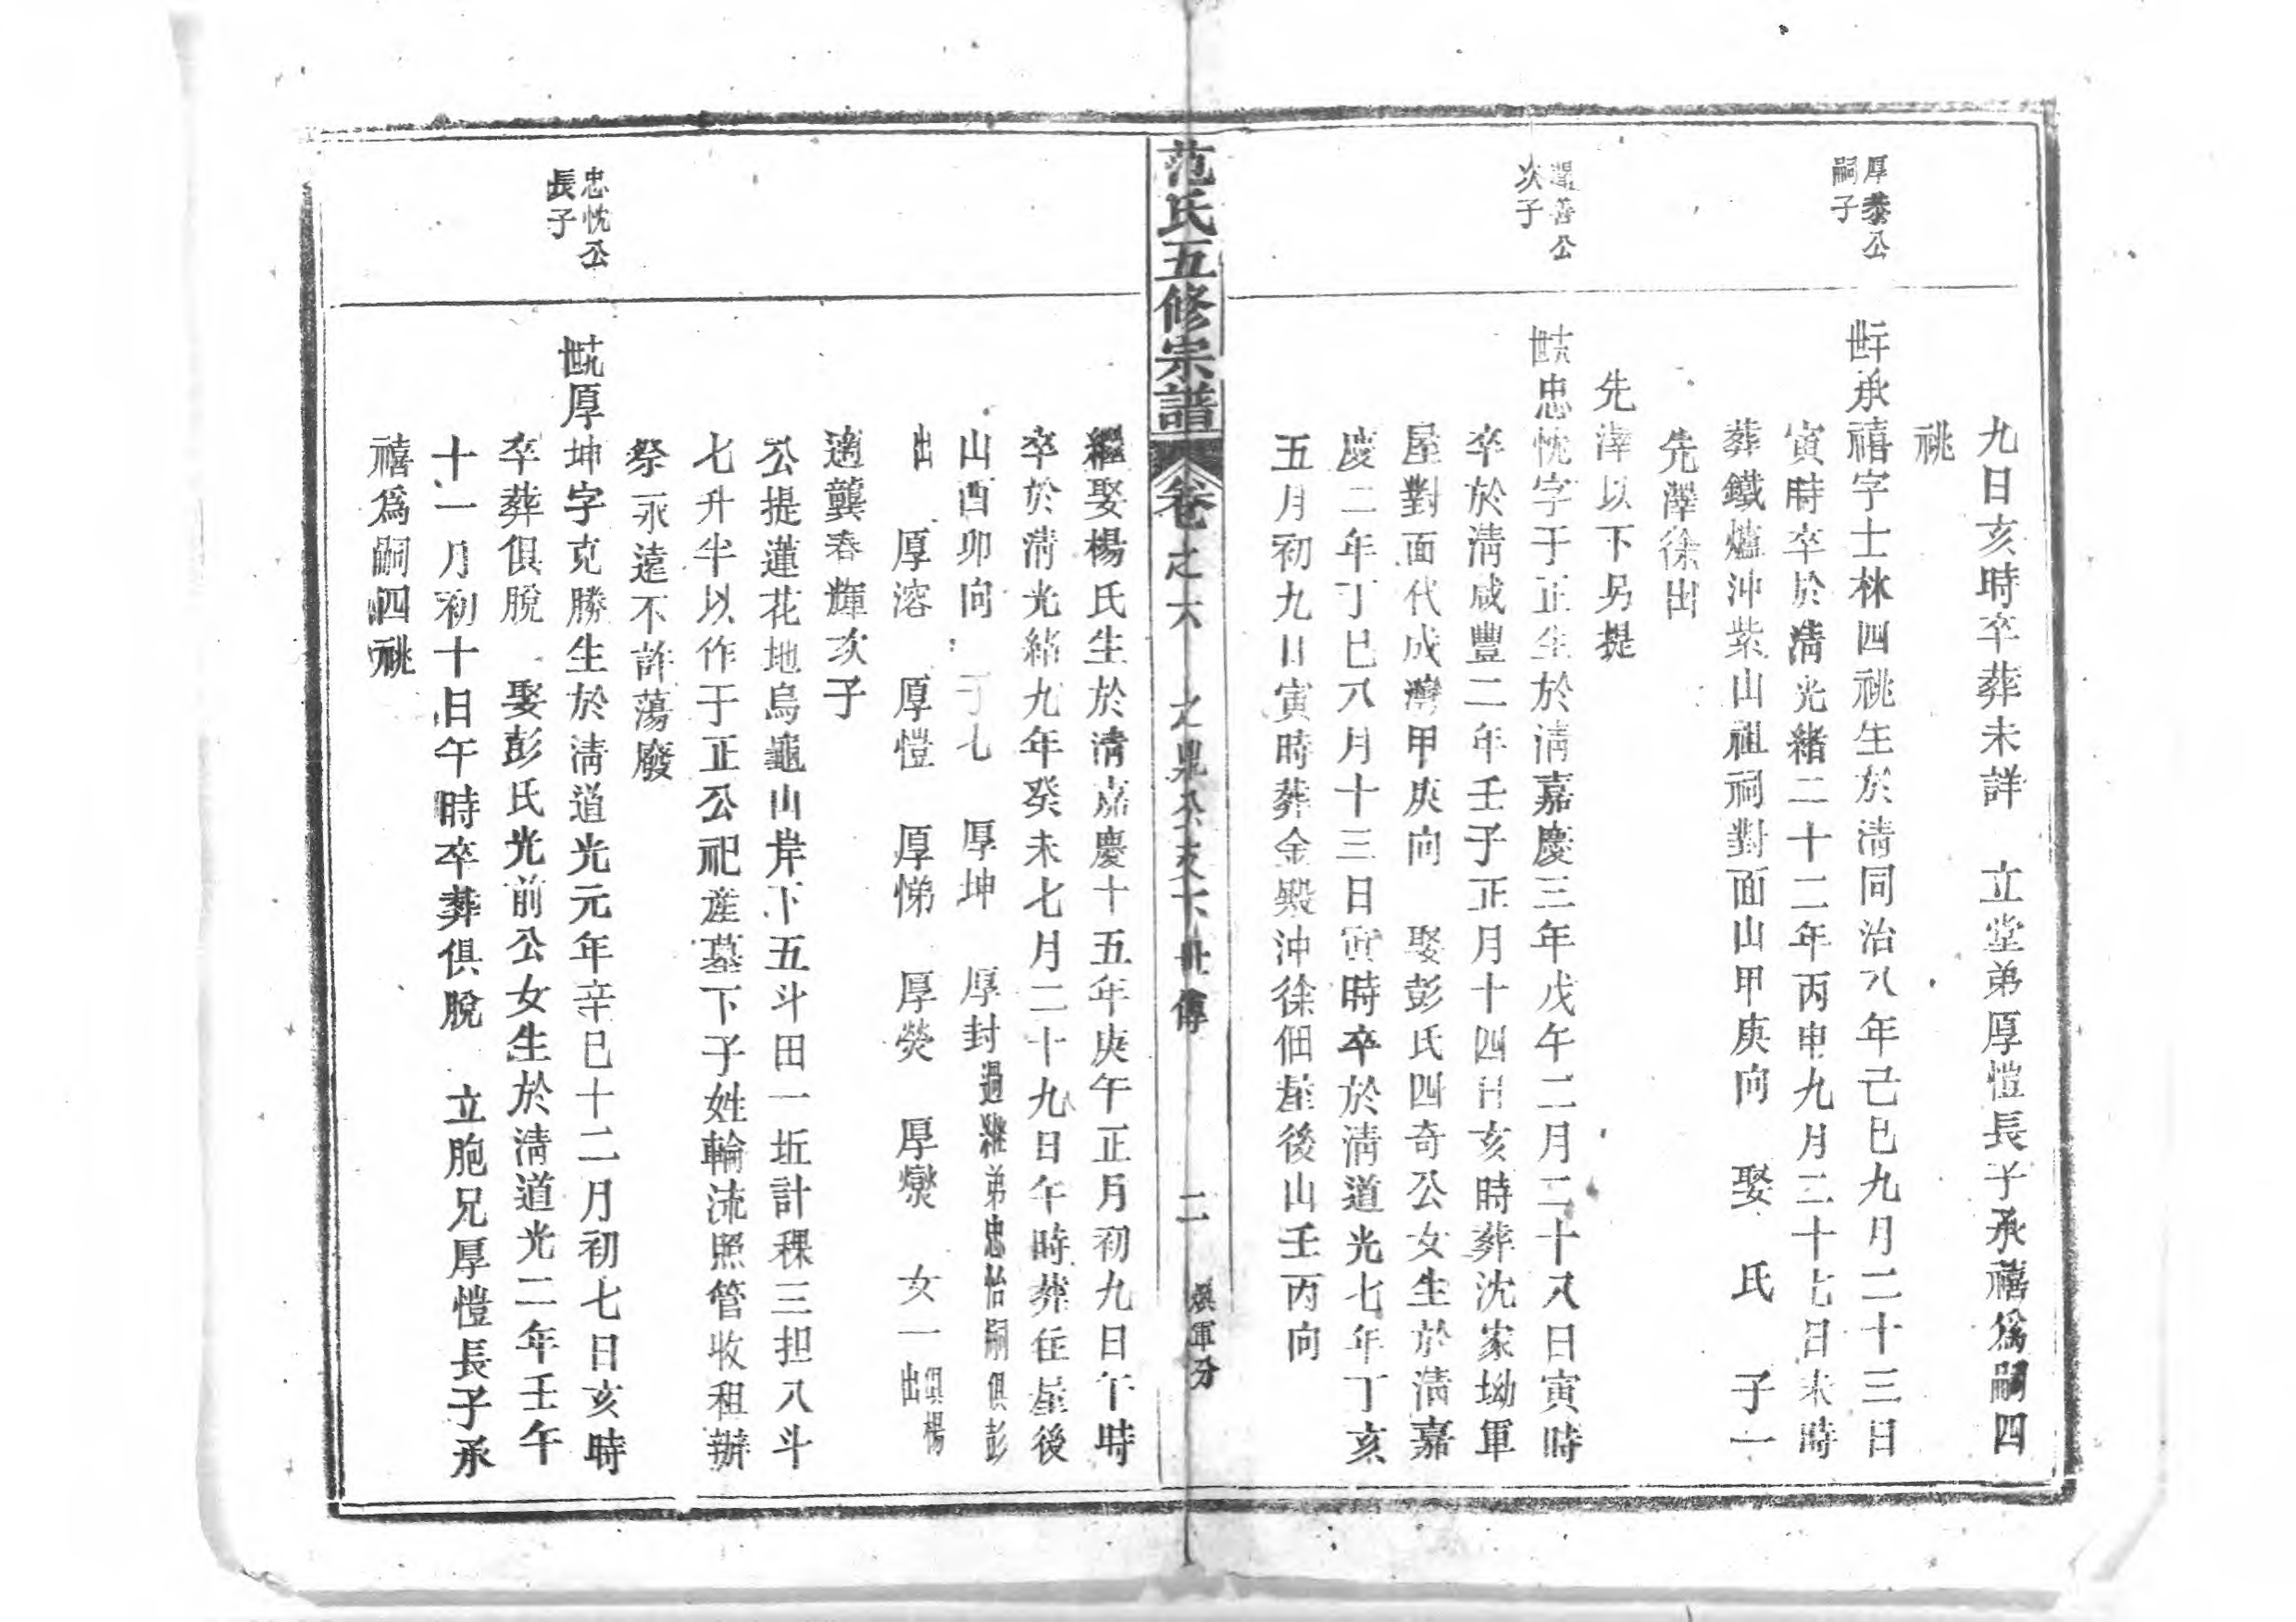 九日亥時卒葬未詳　立堂弟厚愷長子承禧爲嗣四
祧
厚泰公
嗣子
世二十承禧字士林四祧生於清同治八年己巳九月二十三日
寅時卒於清光緒二十二年丙申九月二十七日未時
葬鐵爐沖紫山祖祠對面山甲庚向　娶　氏　子一
先澤徐出
先澤以下另提
善公
次子
世十八忠忱字于正生於清嘉慶三年戊午二月二十八日寅時
卒於清咸豐二年壬子正月十四日亥時葬沈家坳軍
屋對面代成灣甲庚向　娶彭氏四奇公女生於清嘉
慶二年丁巳八月十三日寅時卒於清道光七年丁亥
五月初九日寅時葬金殿沖徐佃屋後山壬丙向
范氏五修宗譜　卷之六　之鼎公支　世傳　二
繼娶楊氏生於清嘉慶十五年庚午正月初九日午時
卒於清光緒九年癸未七月二十九日午時葬住屋後
山酉卯向　子七　厚坤　厚封過繼弟忠怡嗣俱彭
出　厚溶　厚愷　厚悌　厚熒　厚爕　女一俱楊出
適龔春輝次子
公提蓮花地烏龜山岸下五斗田一坵計稞三担八斗
七升半以作于正公祀産墓下子姓輪流照管收租辦
祭永遠不許蕩廢
忠忱公
長子
世十九厚坤字克勝生於清道光元年辛巳十二月初七日亥時
卒葬俱脫　娶彭氏光前公女生於清道光二年壬午
十一月初十日午時卒葬俱脫　立胞兄厚愷長子承
禧爲嗣四祧